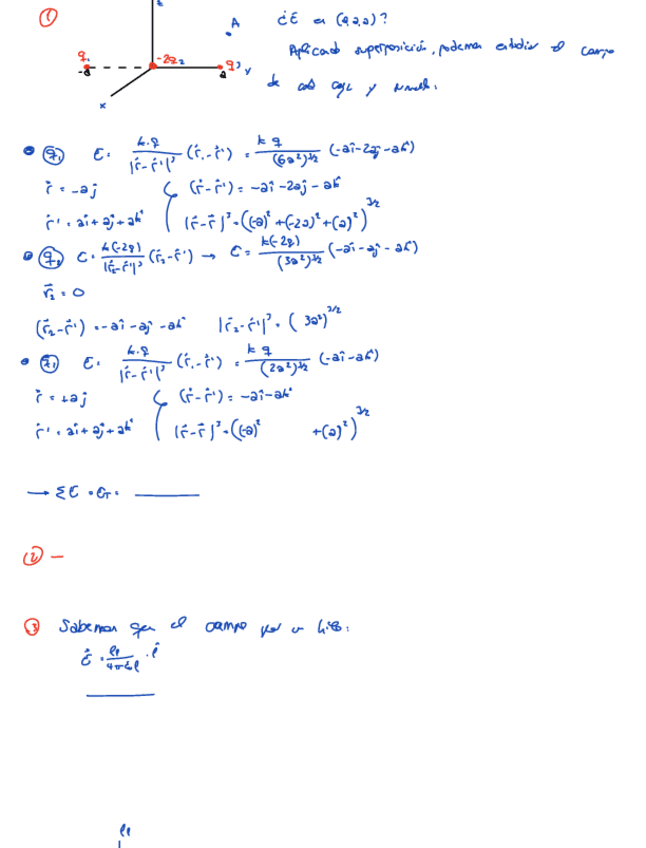 ① z A ¿E en (a,a,a)?
q₁ -2q₂ q³ y Aplicando superposición, podemos estudiar el campo
-a a x de cada carga y sumarlos.
• q₁ E = k·q/|r̄-r̄'|³ (r̄₁-r̄') = k q/(6a²)^3/2 (-aî-2aj-ak̂)
r̄ = -aj (r̄-r̄') = -aî-2aj-ak̂
r̄' = aî+aj+ak̂ |r̄-r̄|³ = ((-a)²+(-2a)²+(a)²)^3/2
• q₂ E = k(-2q)/|r̄₂-r̄'|³ (r̄₂-r̄') → E = k(-2q)/(3a²)^3/2 (-aî-aj-ak̂)
r̄₂ = 0
(r̄₂-r̄') = -aî-aj-ak̂ |r̄₂-r̄'|³ = (3a²)^3/2
• q₁ E = k·q/|r̄-r̄'|³ (r̄₁-r̄') = k q/(2a²)^3/2 (-aî-ak̂)
r̄ = +aj (r̄-r̄') = -aî-ak̂
r̄' = aî+aj+ak̂ |r̄-r̄|³ = ((-a)² +(a)²)^3/2
→ ΣE = E_T =
② —
③ Sabemos que el campo por un hilo: